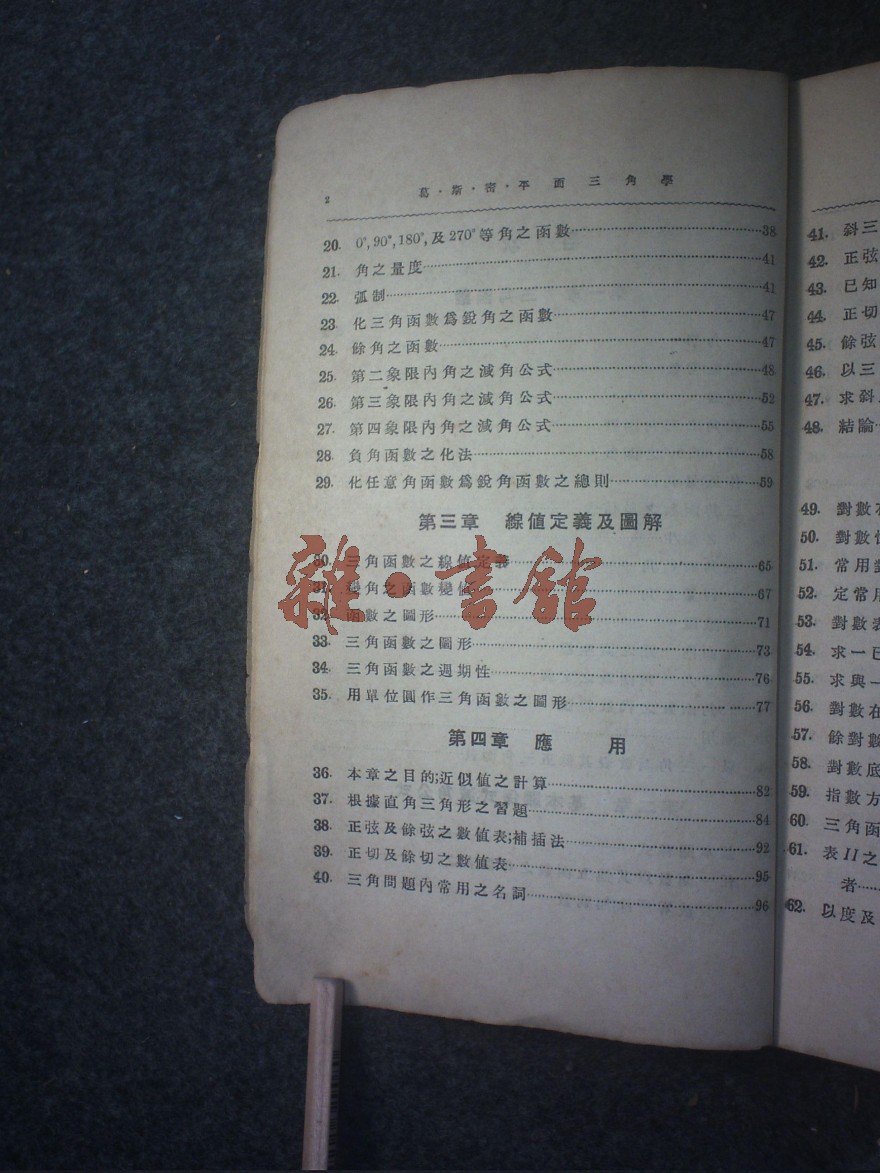 2 葛·斯·密·平面三角學
20. 0°, 90°, 180°, 及 270° 等角之函數……38
21. 角之量度……41
22. 弧制……41
23. 化三角函數爲銳角之函數……47
24. 餘角之函數……47
25. 第二象限內角之減角公式……48
26. 第三象限內角之減角公式……52
27. 第四象限內角之減角公式……55
28. 負角函數之化法……58
29. 化任意角函數爲銳角函數之總則……59
第三章 線値定義及圖解
30. 三角函數之線値定義……65
31. 變角之函數變値……67
32. 函數之圖形……71
33. 三角函數之圖形……73
34. 三角函數之週期性……76
35. 用單位圓作三角函數之圖形……77
第四章 應用
36. 本章之目的;近似値之計算……82
37. 根據直角三角形之習題……84
38. 正弦及餘弦之數値表;補插法……92
39. 正切及餘切之數値表……95
40. 三角問題內常用之名詞……96
雜·書館
41. 斜三
42. 正弦
43. 已知
44. 正切
45. 餘弦
46. 以三
47. 求斜
48. 結論
49. 對數
50. 對數
51. 常用
52. 定常用
53. 對數表
54. 求一已
55. 求與一
56. 對數在
57. 餘對數
58. 對數底
59. 指數方
60. 三角函
61. 表 II 之
者……
62. 以度及